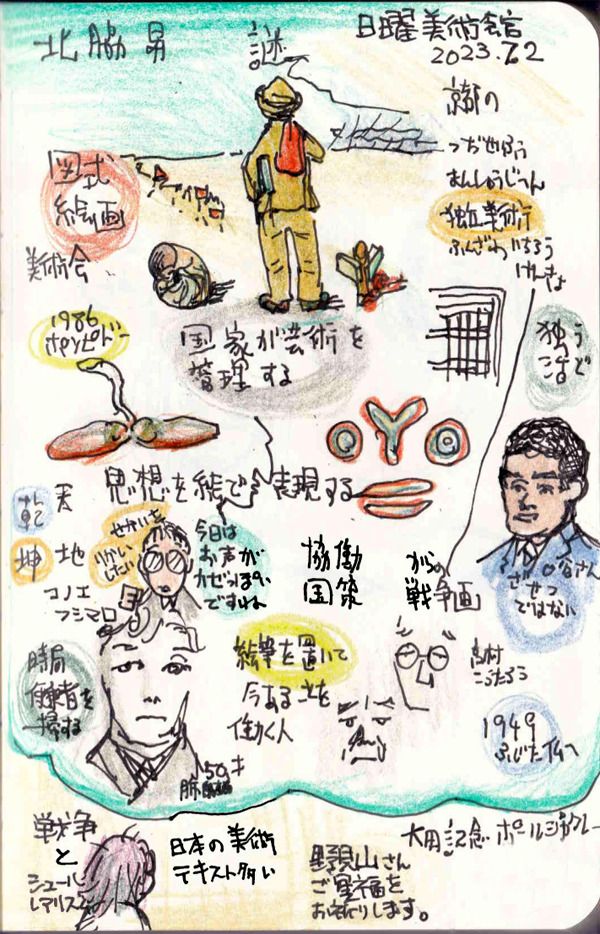 北脇昇
謎
日曜美術会館
2023.7.2
京都の
つぢせいろう
おんしゅうじっけん
独立美術
ふんざわいちろう
けんきょ
図式
絵画
美術会
1986
ポンピドー
国家が芸術を
管理する
独う
活ど
思想を絵で表現する
乾 天
坤 地
せかいを
りかいしたい
今日は
お声が
カゼっぽい
ですね
コノエ
フミマロ
協働
国策
からの
戦争画
○谷さん
ざせつ
ではない
時局
便乗者を
一掃する
絵筆を置いて
今ある立を
働く人
高村
こうたろう
1949
ふじた仏へ
50才
肺
戦争
と
シュール
レアリスム
日本の美術
テキスト多い
太田記念ポールジャクレー
野見山さん
ご冥福を
お祈りします。